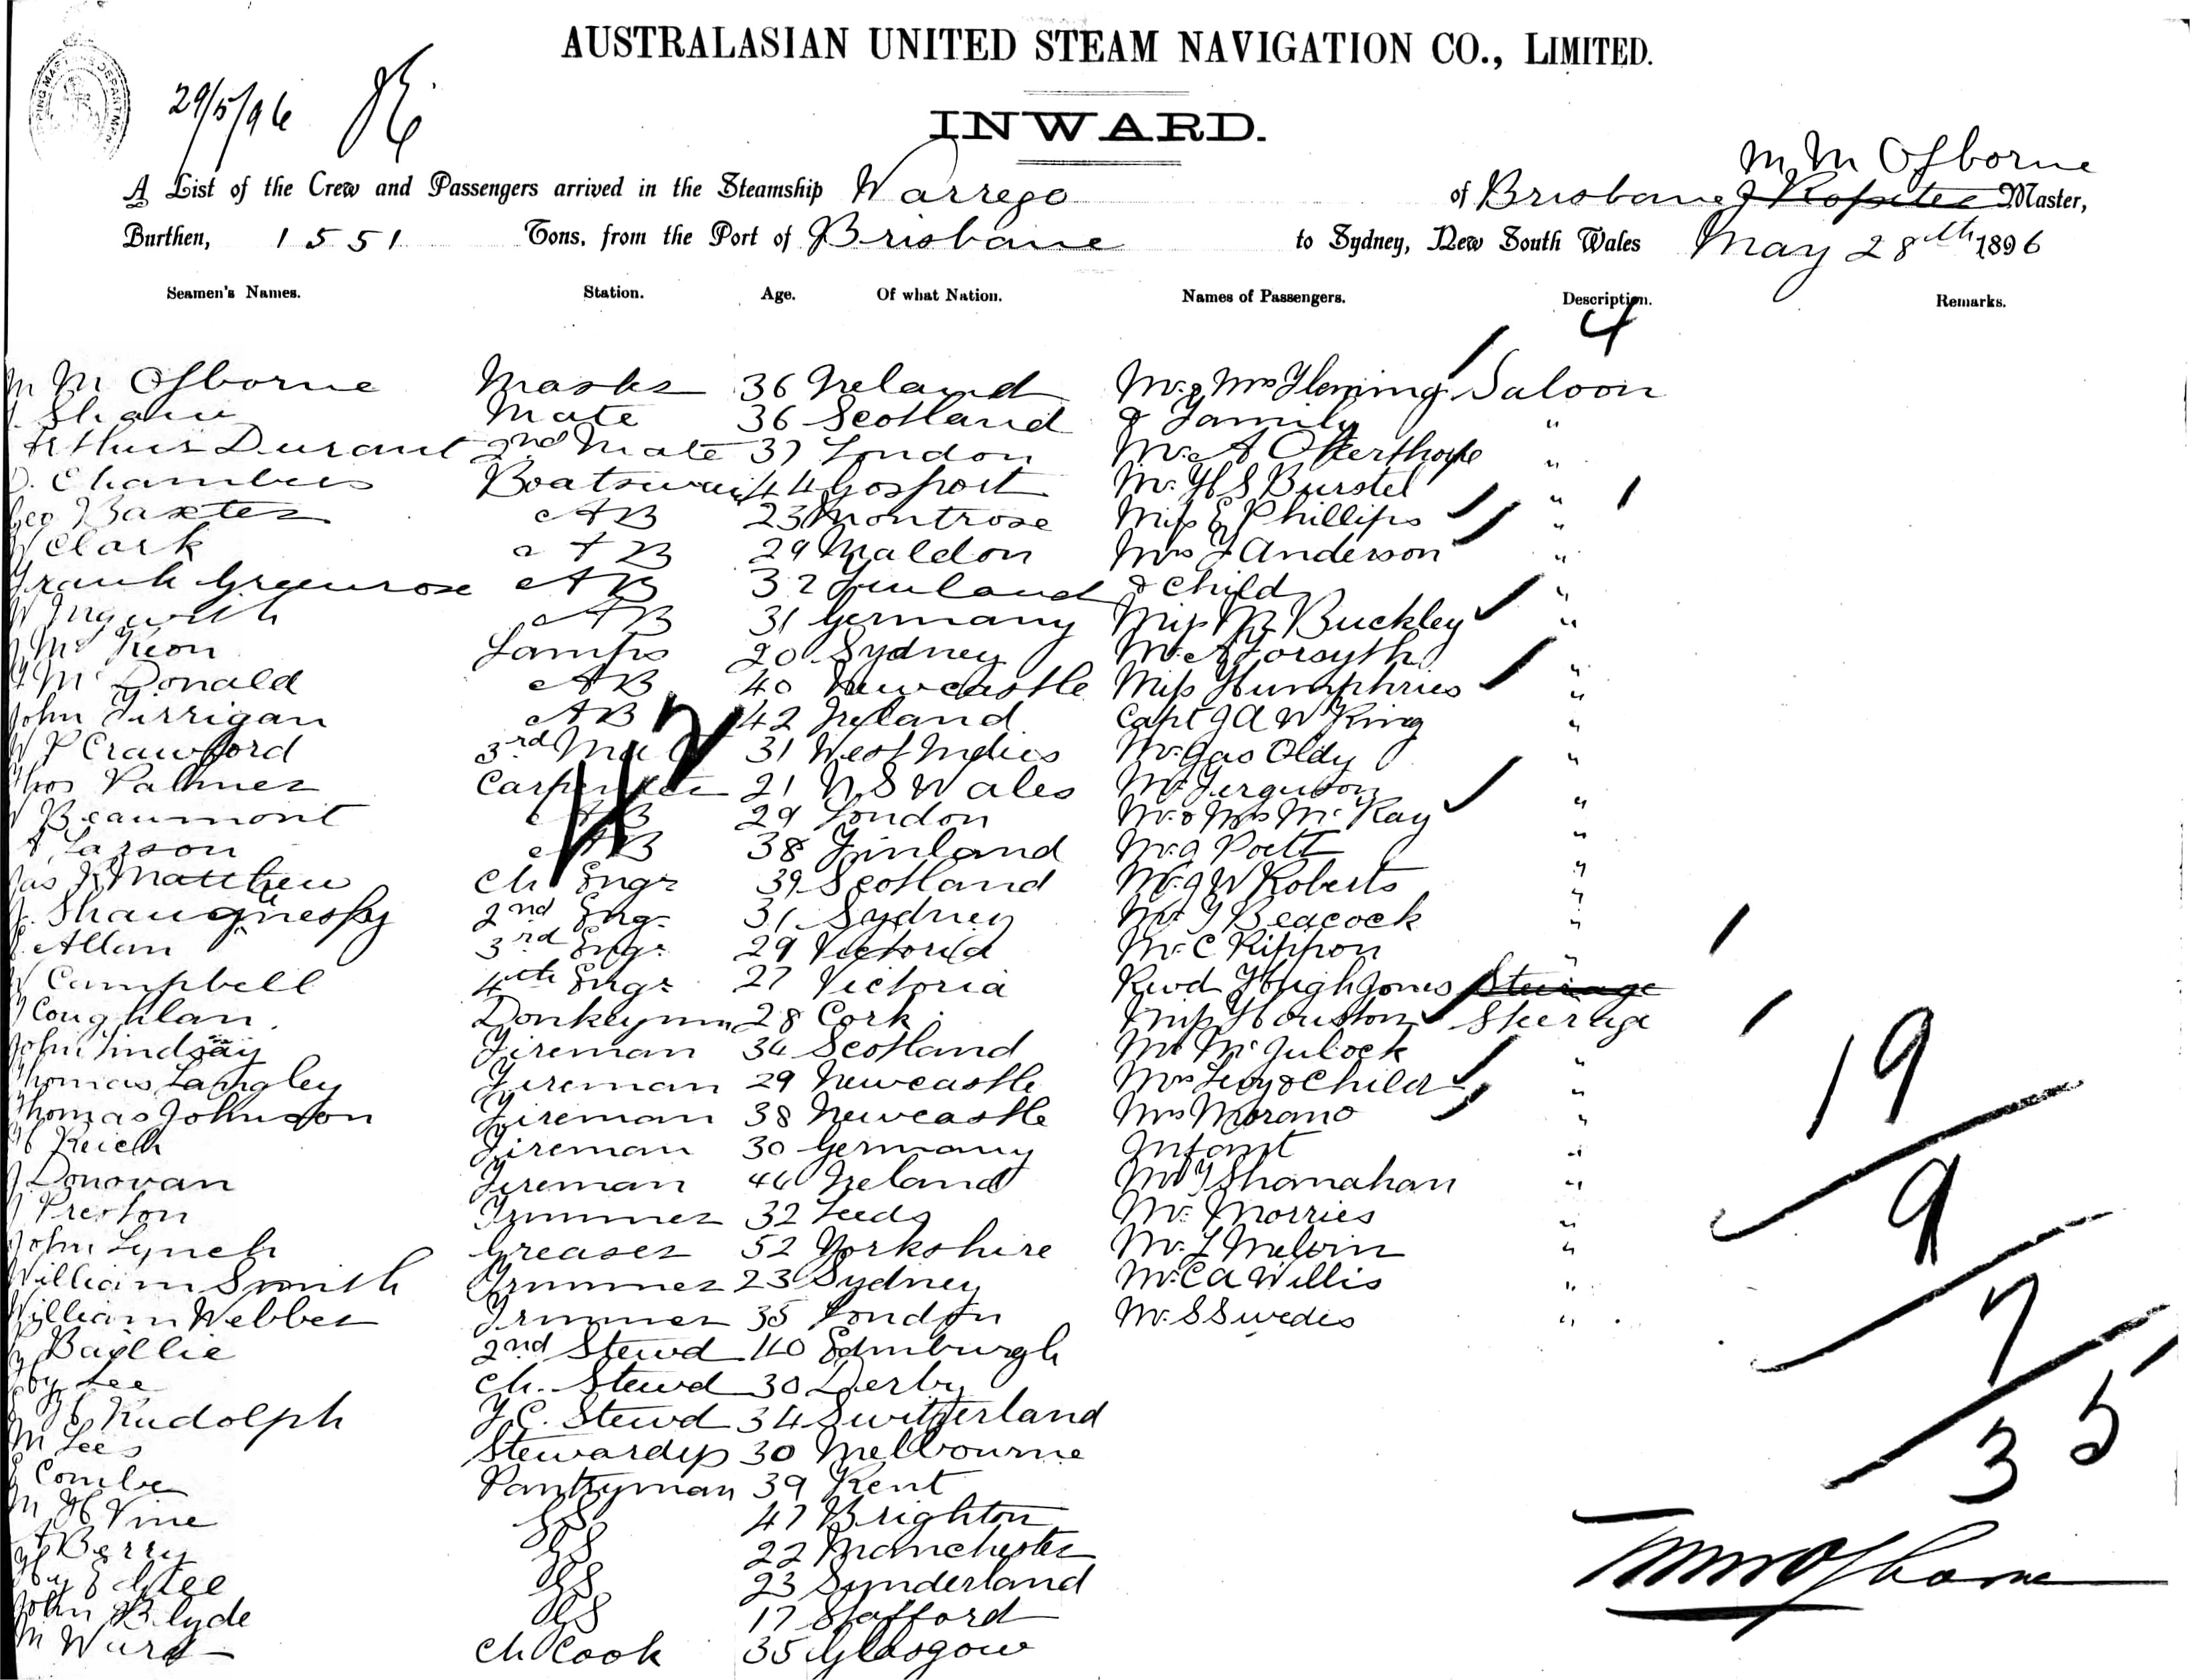 AUSTRALASIAN UNITED STEAM NAVIGATION CO., LIMITED.
29/5/96
INWARD.
M M Osborne
A List of the Crew and Passengers arrived in the Steamship Warrego of Brisbane Master,
Burthen, 1551 Tons, from the Port of Brisbane to Sydney, New South Wales May 28th 1896
Seamen's Names. Station. Age. Of what Nation. Names of Passengers. Description. Remarks.
4
M M Osborne Master 36 Ireland Mr & Mrs Fleming Saloon
J. Shaw Mate 36 Scotland & Family "
Arthur Durant 2nd Mate 37 London Mr A "
D. Chambers Boatswain 44 Gosport Mr H S Burstel " 1
Geo Baxter AB 23 Montrose Miss E Phillips "
W Clark AB 29 Maldon Mrs J Anderson "
Frank Greenrose AB 32 Finland & Child "
W AB 31 Germany Miss M Buckley "
J McKeon Lamps 20 Sydney Mr A Forsyth "
McDonald AB 40 Newcastle Miss Humphries "
John Firrigan AB 42 Ireland Capt J A W King "
W P Crawford 3rd Mate 31 West Indies Mr Jas Oldy "
Thos Palmer Carpenter 21 N S Wales Mr Ferguson "
W Beaumont AB 29 London Mr & Mrs McKay "
A. Larson AB 38 Finland Mr J Pott "
Jas Matthew Ch. Engr 39 Scotland Mr J W Roberts "
J. Shaugnessy 2nd Engr 31 Sydney Mr J Beacock "
Allan 3rd Engr 29 Victoria Mr C Rippon "
W Campbell 4th Engr 27 Victoria Revd Hugh Jones Steerage
J Coughlan Donkeyman 28 Cork Miss Houston Steerage
John Lindsay Fireman 34 Scotland Mr "
Thomas Langley Fireman 29 Newcastle Mrs Levy & Child "
Thomas Johnson Fireman 38 Newcastle Mrs Morano "
Reich Fireman 30 Germany Infant "
J Donovan Fireman 46 Ireland Mr J Shanahan "
J Preston Trimmer 32 Leeds Mr Morries "
John Lynch Greaser 52 Yorkshire Mr L Melvin "
William Smith Trimmer 23 Sydney Mr C A Willis "
William Webber Trimmer 35 London Mr S Swedes "
Baillie 2nd Stewd 40 Edinburgh
Lee Ch. Stewd 30 Derby
Rudolph F.C. Stewd 34 Switzerland
M Lees Stewardess 30 Melbourne
Combe Pantryman 39 Kent
M H Vine GS 47 Brighton
Berry GS 22 Manchester
GS 23 Sunderland
John Blyde GS 17 Stafford
M Ward Ch Cook 35 Glasgow
19
9
7
35
M M Osborne